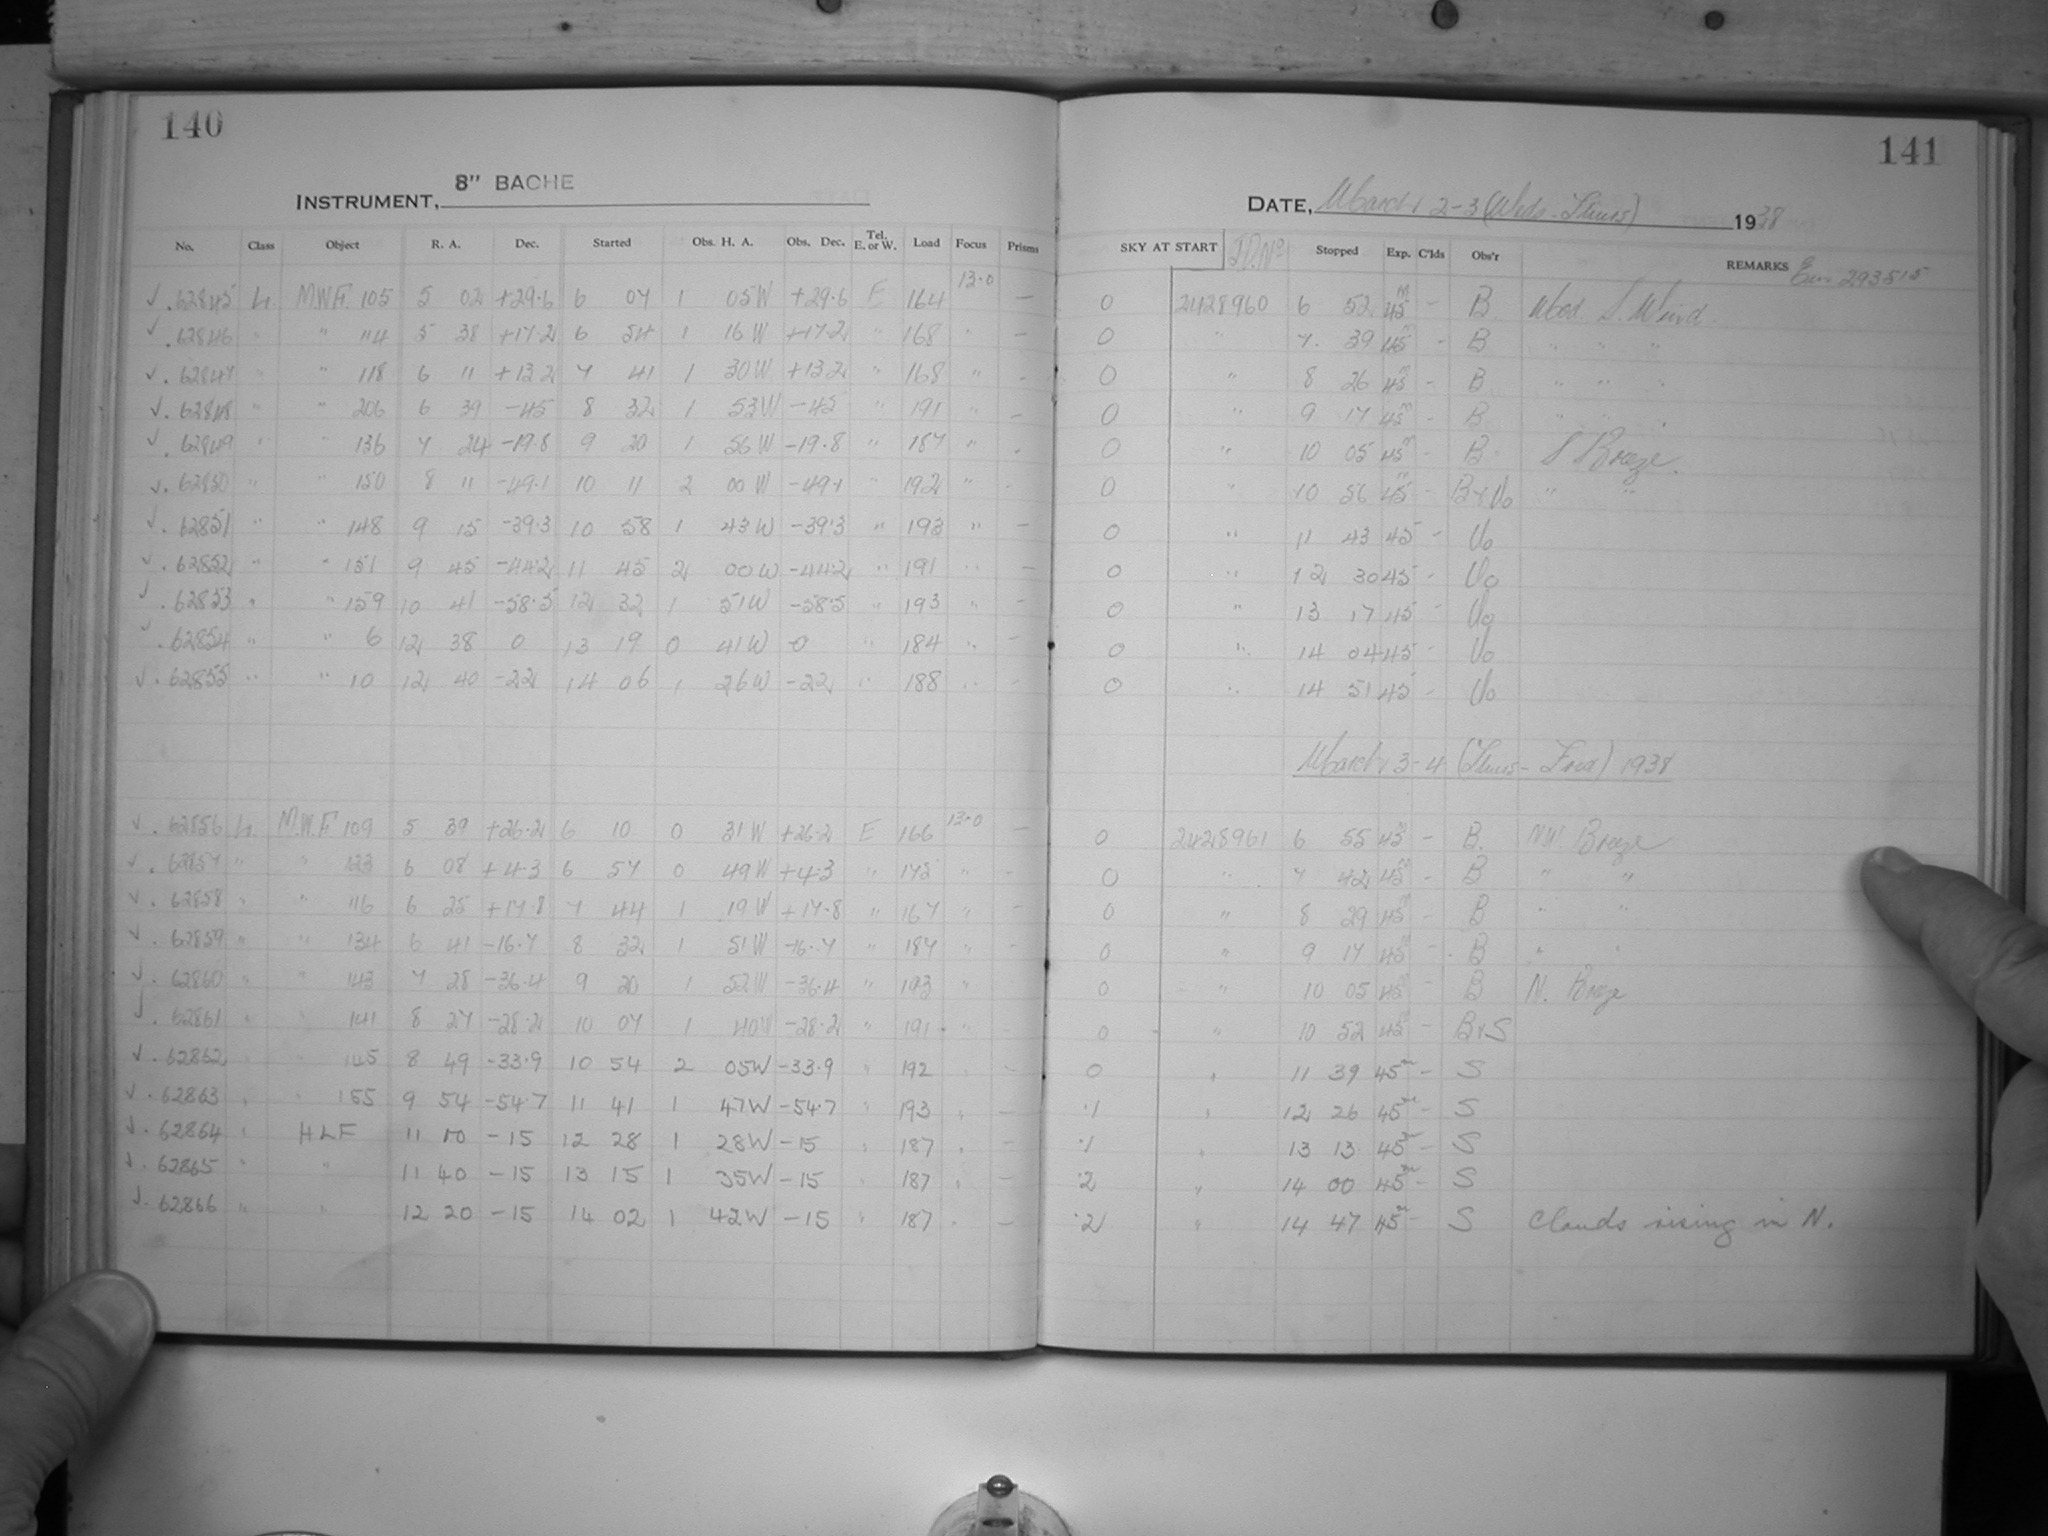 140
141
INSTRUMENT, 8" BACHE
DATE, March 2-3 (Weds-Thurs) 1938
No. Class Object R. A. Dec. Started Obs. H. A. Obs. Dec. Tel. E. or W. Load Focus Prisms SKY AT START J.D. No Stopped Exp. C'lds Obs'r REMARKS
✓. 62845 L M.W.F. 105 5 02 +29.6 6 07 1 05W +29.6 E 164 13.0 — 0 2428960 6 52 45m - B Mod. S. Wind.
✓. 62846 " " 114 5 38 +17.2 6 54 1 16W +17.2 " 168 " — 0 " 7 39 45m - B " " "
✓. 62847 " " 118 6 11 +13.2 7 41 1 30W +13.2 " 168 " - 0 " 8 26 45m - B " " "
✓. 62848 " " 206 6 39 -45 8 32 1 53W -45 " 191 " — 0 " 9 17 45m - B " " "
✓. 62849 " " 136 7 24 -19.8 9 20 1 56W -19.8 " 187 " - 0 " 10 05 45m - B S Breeze.
✓. 62850 " " 150 8 11 -49.1 10 11 2 00W -49.1 " 192 " - 0 " 10 56 45m - B+Uo " "
✓. 62851 " " 148 9 15 -39.3 10 58 1 43W -39.3 " 193 " — 0 " 11 43 45 - Uo
✓. 62852 " " 151 9 45 -44.2 11 45 2 00W -44.2 " 191 " — 0 " 12 30 45 - Uo
✓. 62853 " " 159 10 41 -58.5 12 32 1 51W -58.5 " 193 " — 0 " 13 17 45 - Uo
✓. 62854 " " 6 12 38 0 13 19 0 41W 0 " 184 " — 0 " 14 04 45 - Uo
✓. 62855 " " 10 12 40 -22 14 06 1 26W -22 " 188 " - 0 " 14 51 45 - Uo
March 3-4 (Thurs-Frid) 1938
✓. 62856 L M.W.F. 109 5 39 +26.2 6 10 0 31W +26.2 E 166 13.0 — 0 2428961 6 55 45m - B. NW. Breeze
✓. 62857 " " 123 6 08 +4.3 6 57 0 49W +4.3 " " - 0 " 7 42 45m - B " "
✓. 62858 " " 116 6 25 +17.8 7 44 1 19W +17.8 " 167 " — 0 " 8 29 45m - B " "
✓. 62859 " " 134 6 41 -16.7 8 32 1 51W -16.7 " 187 " - 0 " 9 17 45m - B " "
✓. 62860 " " 143 7 28 -36.4 9 20 1 52W -36.4 " 193 " - 0 " 10 05 45m - B N. Breeze
✓. 62861 " " 141 8 27 -28.2 10 07 1 40W -28.2 " 191 " - 0 " 10 52 45m - B+S
✓. 62862 " " 145 8 49 -33.9 10 54 2 05W -33.9 " 192 " - 0 " 11 39 45m - S
✓. 62863 " " 155 9 54 -54.7 11 41 1 47W -54.7 " 193 " - .1 " 12 26 45m - S
✓. 62864 " HLF 11 00 -15 12 28 1 28W -15 " 187 " — .1 " 13 13 45m - S
✓. 62865 " " 11 40 -15 13 15 1 35W -15 " 187 " — .2 " 14 00 45m - S
✓. 62866 " " 12 20 -15 14 02 1 42W -15 " 187 " — .2 " 14 47 45m - S Clouds rising in N.